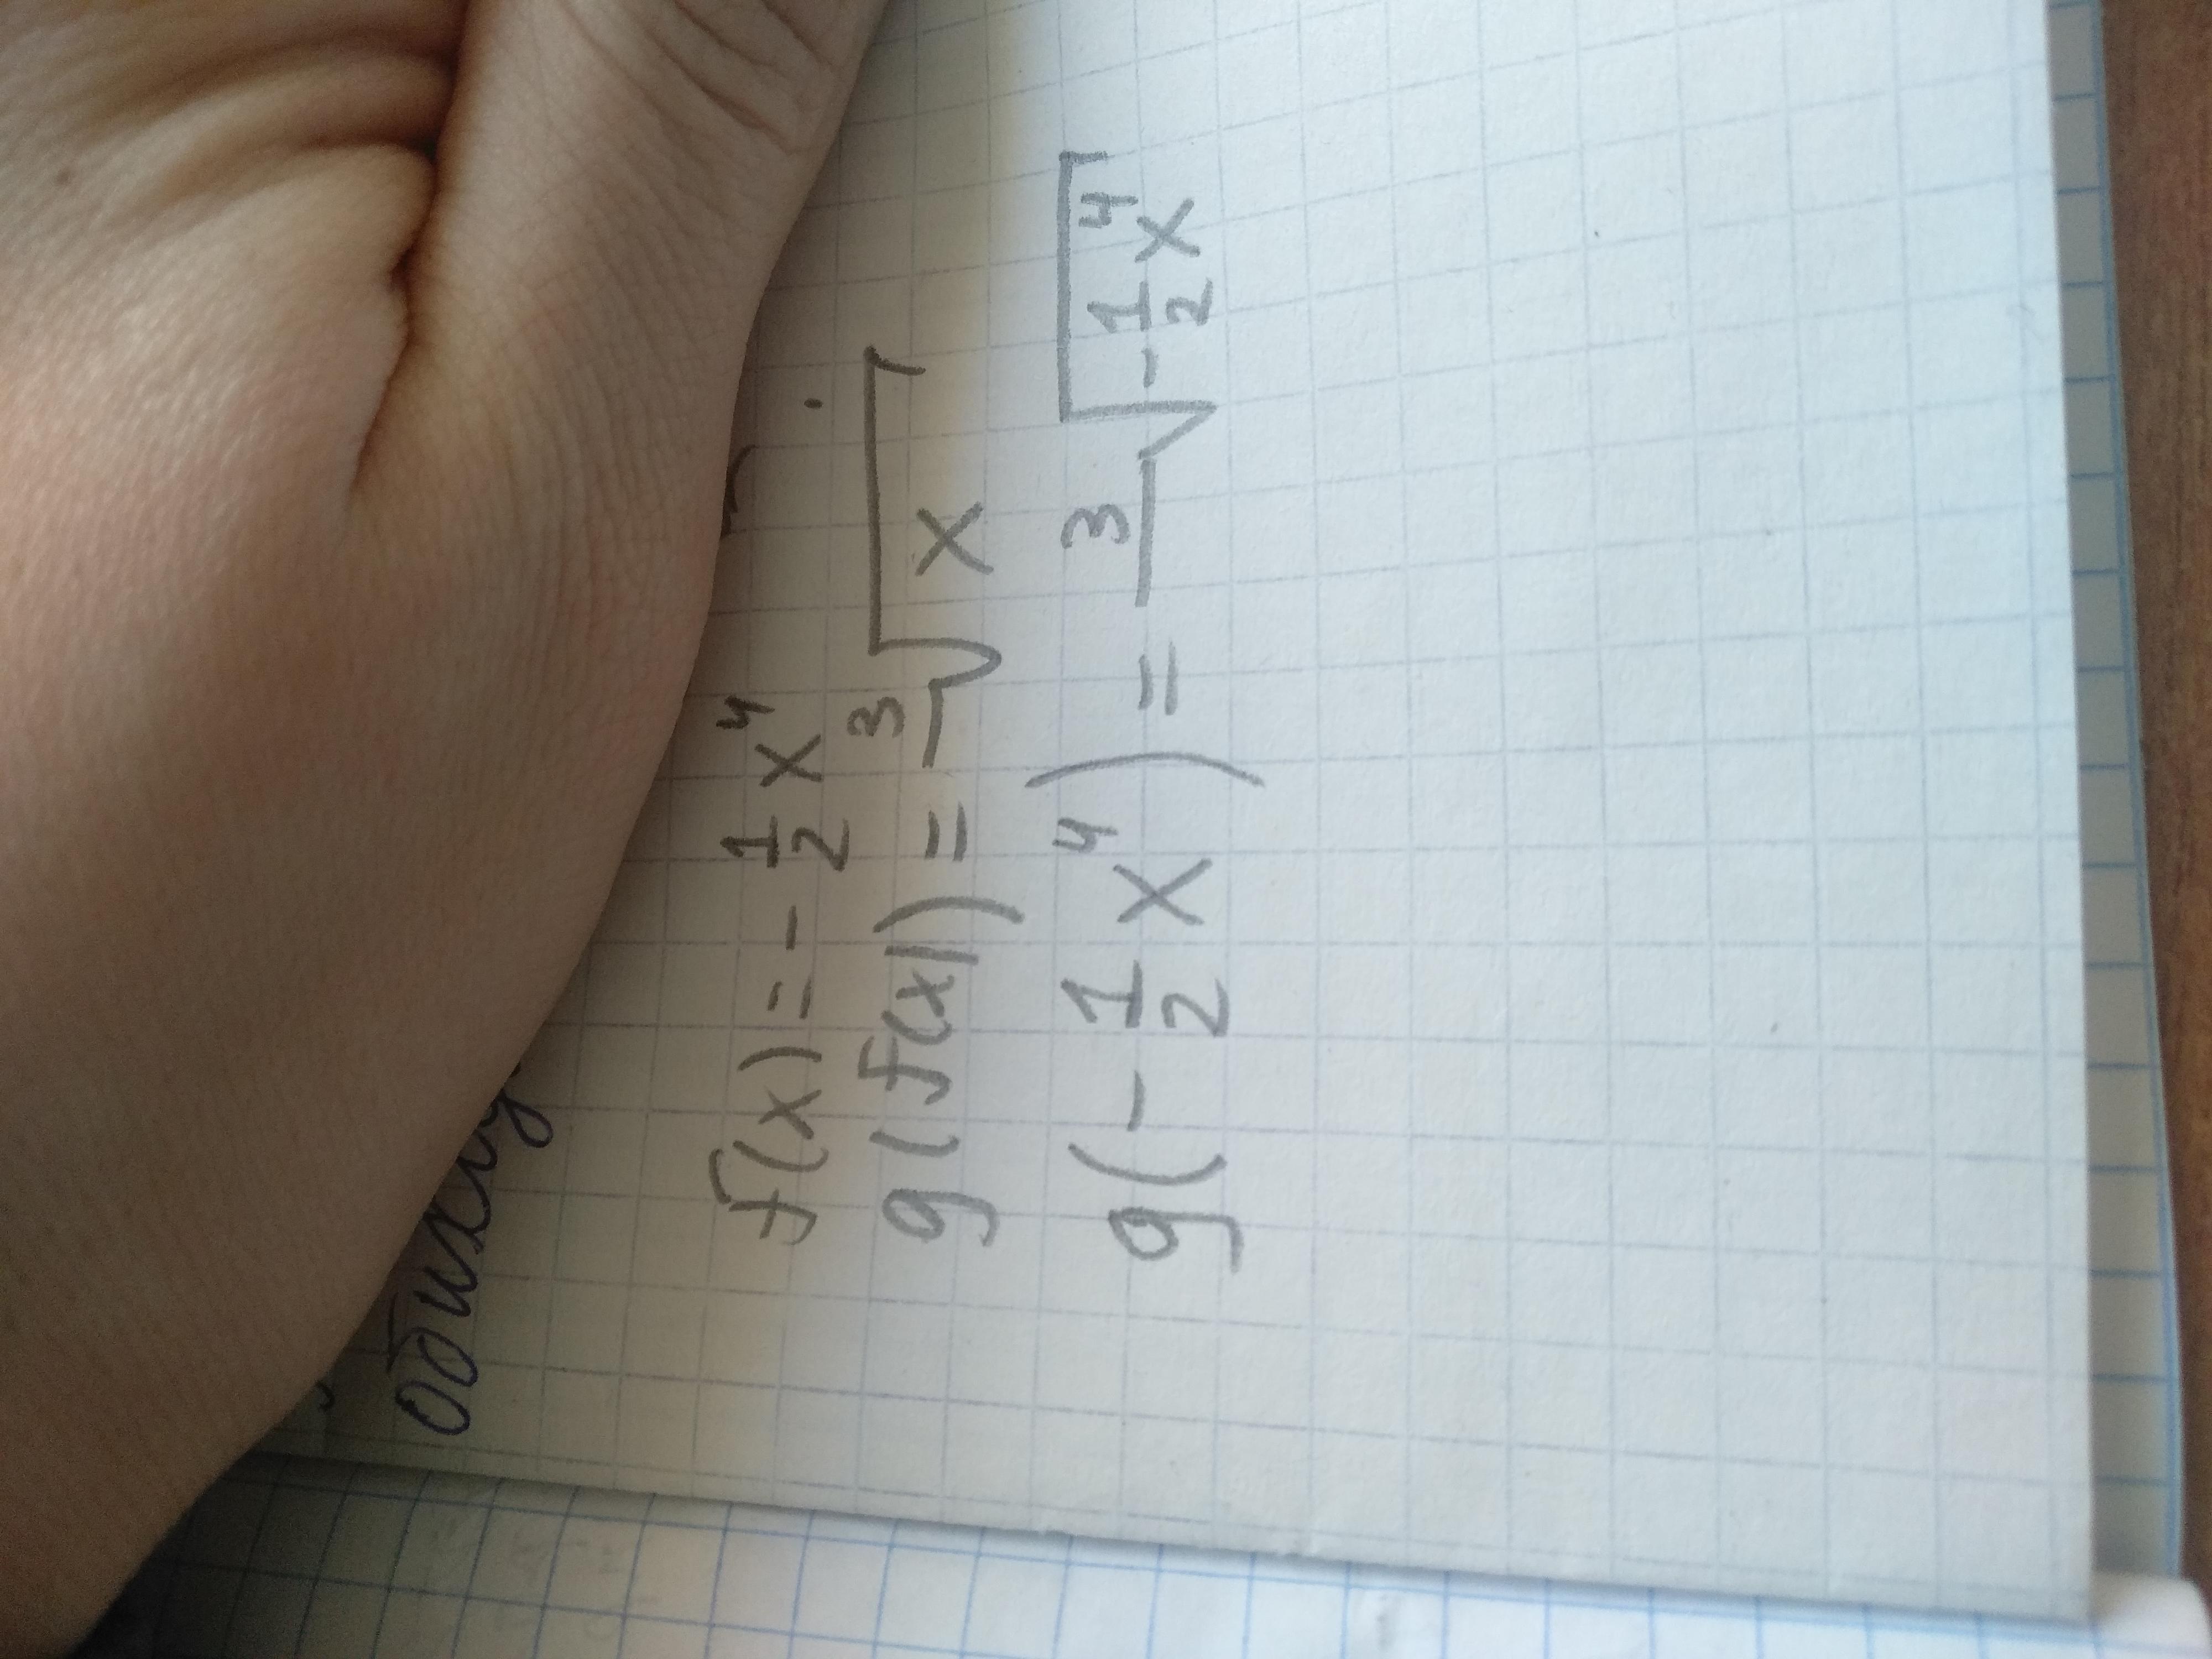 f(x)=-1/2x⁴
g(f(x))=³√x
g(-1/2x⁴)=³√-1/2x⁴